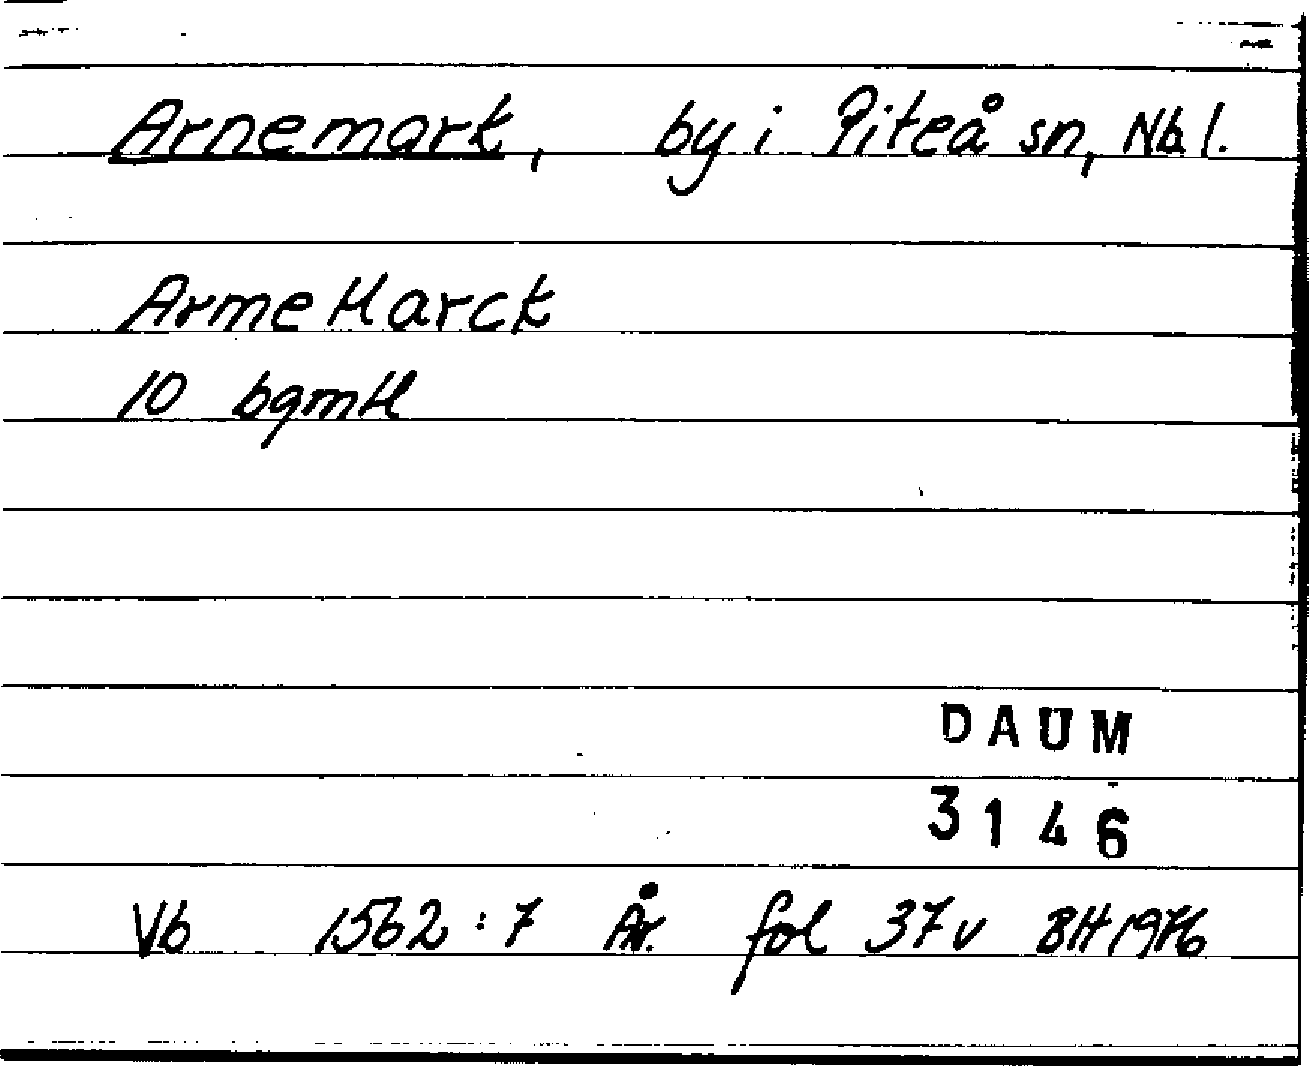 Arnemark, by i Piteå sn, Nb l.
Arme Marck
10 bgmH
DAUM
3146
Vb 1562:7 År. fol 37v BH 1976